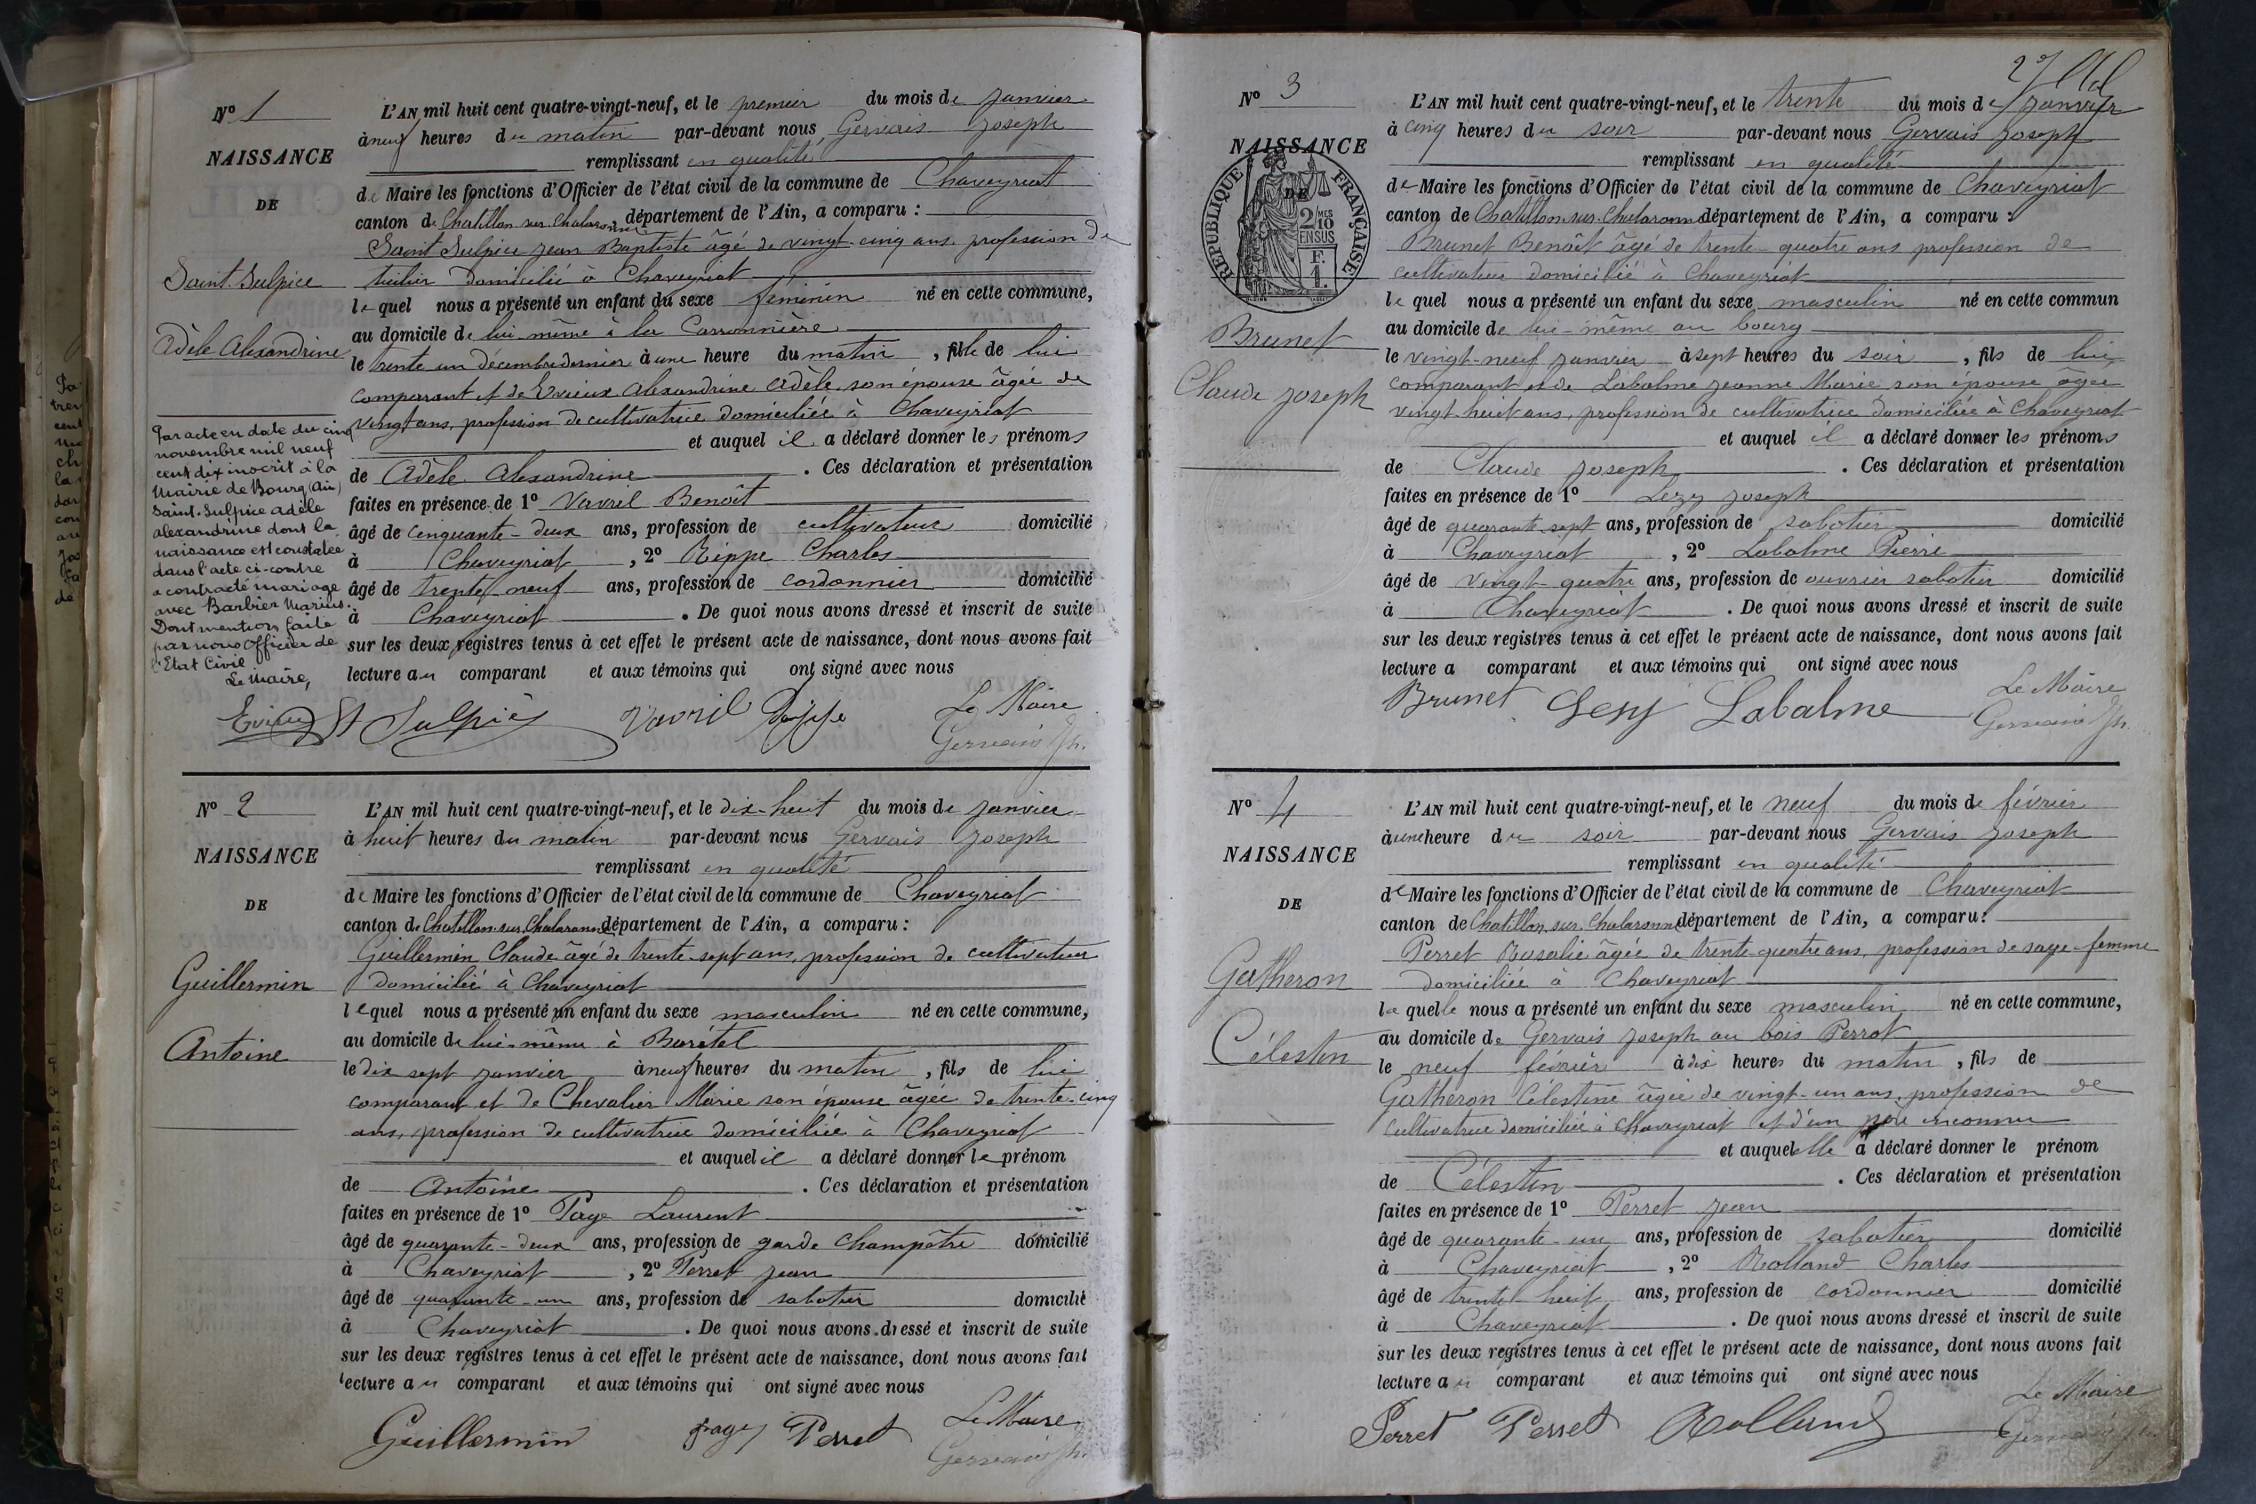 Nº 1
NAISSANCE
DE
Saint Sulpice
Adèle Alexandrine
Par acte en date du cinq
novembre mil neuf
cent dix inscrit à la
Mairie de Bourg (Ain)
Saint-Sulpice Adèle
Alexandrine dont la
naissance est constatée
dans l'acte ci-contre
a contracté mariage
avec Barbier Marius.
Dont mention faite
par nous Officier de
l'Etat Civil
Le Maire,
L'AN mil huit cent quatre-vingt-neuf, et le premier du mois de janvier
à neuf heures du matin par-devant nous Gervais Joseph
remplissant en qualité
de Maire les fonctions d'Officier de l'état civil de la commune de Chaveyriat
canton de Chatillon sur Chalaronne, département de l'Ain, a comparu :
Saint Sulpice Jean Baptiste âgé de vingt-cinq ans profession de
tuilier domicilié à Chaveyriat
lequel nous a présenté un enfant du sexe féminin né en cette commune,
au domicile de lui même à la Carronnière
le trente un décembre dernier à une heure du matin, fille de lui
comparant et de Evieux Alexandrine Adèle son épouse âgée de
vingt ans, profession de cultivatrice domiciliée à Chaveyriat
et auquel il a déclaré donner les prénoms
de Adèle Alexandrine . Ces déclaration et présentation
faites en présence de 1º Vavril Benoît
âgé de cinquante-deux ans, profession de cultivateur domicilié
à Chaveyriat, 2º Rippe Charles
âgé de trente neuf ans, profession de cordonnier domicilié
à Chaveyriat . De quoi nous avons dressé et inscrit de suite
sur les deux registres tenus à cet effet le présent acte de naissance, dont nous avons fait
lecture au comparant et aux témoins qui ont signé avec nous
Evieux St Sulpice Vavril Rippe Le Maire
Gervais Jh.
Nº 2
NAISSANCE
DE
Guillermin
Antoine
L'AN mil huit cent quatre-vingt-neuf, et le dix-huit du mois de janvier
à huit heures du matin par-devant nous Gervais Joseph
remplissant en qualité
de Maire les fonctions d'Officier de l'état civil de la commune de Chaveyriat
canton de Chatillon-sur-Chalaronne département de l'Ain, a comparu :
Guillermin Claude âgé de trente-sept ans, profession de cultivateur
domicilié à Chaveyriat
lequel nous a présenté un enfant du sexe masculin né en cette commune,
au domicile de lui-même à Burétel
le dix sept janvier à neuf heures du matin, fils de lui
comparant et de Chevalier Marie son épouse âgée de trente-cinq
ans, profession de cultivatrice domiciliée à Chaveyriat
et auquel il a déclaré donner le prénom
de Antoine . Ces déclaration et présentation
faites en présence de 1º Page Laurent
âgé de quarante-deux ans, profession de garde champêtre domicilié
à Chaveyriat, 2º Perret Jean
âgé de quarante-un ans, profession de sabotier domicilié
à Chaveyriat . De quoi nous avons dressé et inscrit de suite
sur les deux registres tenus à cet effet le présent acte de naissance, dont nous avons fait
lecture au comparant et aux témoins qui ont signé avec nous
Guillermin page Perret Le Maire
Gervais Jh.
Nº 3
NAISSANCE
DE
RÉPUBLIQUE FRANÇAISE
2/10 MES
EN SUS
F.
1.
Brunet
Claude Joseph
L'AN mil huit cent quatre-vingt-neuf, et le trente du mois de janvier
à cinq heures du soir par-devant nous Gervais Joseph
remplissant en qualité
de Maire les fonctions d'Officier de l'état civil de la commune de Chaveyriat
canton de Chatillon-sur-Chalaronne département de l'Ain, a comparu :
Brunet Benoît âgé de trente-quatre ans profession de
cultivateur domicilié à Chaveyriat
lequel nous a présenté un enfant du sexe masculin né en cette commun
au domicile de lui-même au bourg
le vingt-neuf janvier à sept heures du soir, fils de lui
comparant et de Labalme Jeanne Marie son épouse âgée
vingt huit ans, profession de cultivatrice domiciliée à Chaveyriat
et auquel il a déclaré donner les prénoms
de Claude Joseph . Ces déclaration et présentation
faites en présence de 1º Lezy Joseph
âgé de quarante sept ans, profession de sabotier domicilié
à Chaveyriat, 2º Labalme Pierre
âgé de vingt-quatre ans, profession de ouvrier sabotier domicilié
à Chaveyriat . De quoi nous avons dressé et inscrit de suite
sur les deux registres tenus à cet effet le présent acte de naissance, dont nous avons fait
lecture a comparant et aux témoins qui ont signé avec nous
Brunet Lesy Labalme Le Maire
Gervais Jh.
Nº 4
NAISSANCE
DE
Gatheron
Célestin
L'AN mil huit cent quatre-vingt-neuf, et le neuf du mois de février
à une heure du soir par-devant nous Gervais Joseph
remplissant en qualité
de Maire les fonctions d'Officier de l'état civil de la commune de Chaveyriat
canton de Chatillon sur Chalaronne département de l'Ain, a comparu :
Perret Rosalie âgée de trente-quatre ans, profession de sage-femme
domiciliée à Chaveyriat
laquelle nous a présenté un enfant du sexe masculin né en cette commune,
au domicile de Gervais Joseph au bois Perrot
le neuf février à dix heures du matin, fils de
Gatheron Célestine âgée de vingt-un ans, profession de
cultivatrice domiciliée à Chaveyriat et d'un père inconnu
et auquel elle a déclaré donner le prénom
de Célestin . Ces déclaration et présentation
faites en présence de 1º Perret Jean
âgé de quarante-un ans, profession de sabotier domicilié
à Chaveyriat, 2º Rolland Charles
âgé de trente-huit ans, profession de cordonnier domicilié
à Chaveyriat . De quoi nous avons dressé et inscrit de suite
sur les deux registres tenus à cet effet le présent acte de naissance, dont nous avons fait
lecture au comparant et aux témoins qui ont signé avec nous
Perret Perret Rolland Le Maire
Gervais Jh.